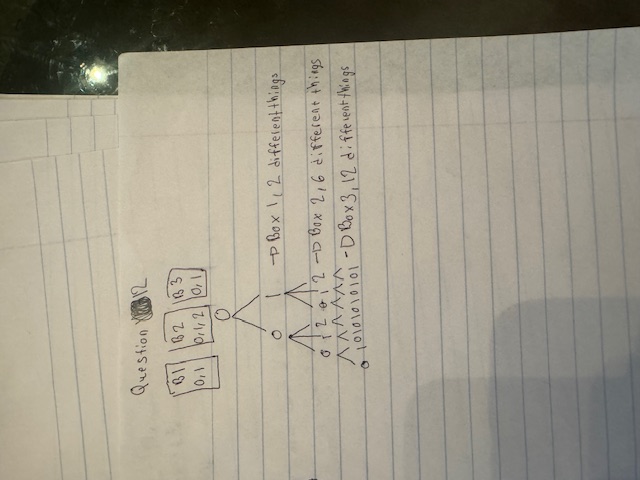 Question 12
B1 B2 B3
0,1 0,1,2 0,1
0
0 1 → Box 1, 2 different things
0 1 2 0 1 2 → Box 2, 6 different things
0 1 0 1 0 1 0 1 0 1 0 1 → Box 3, 12 different things